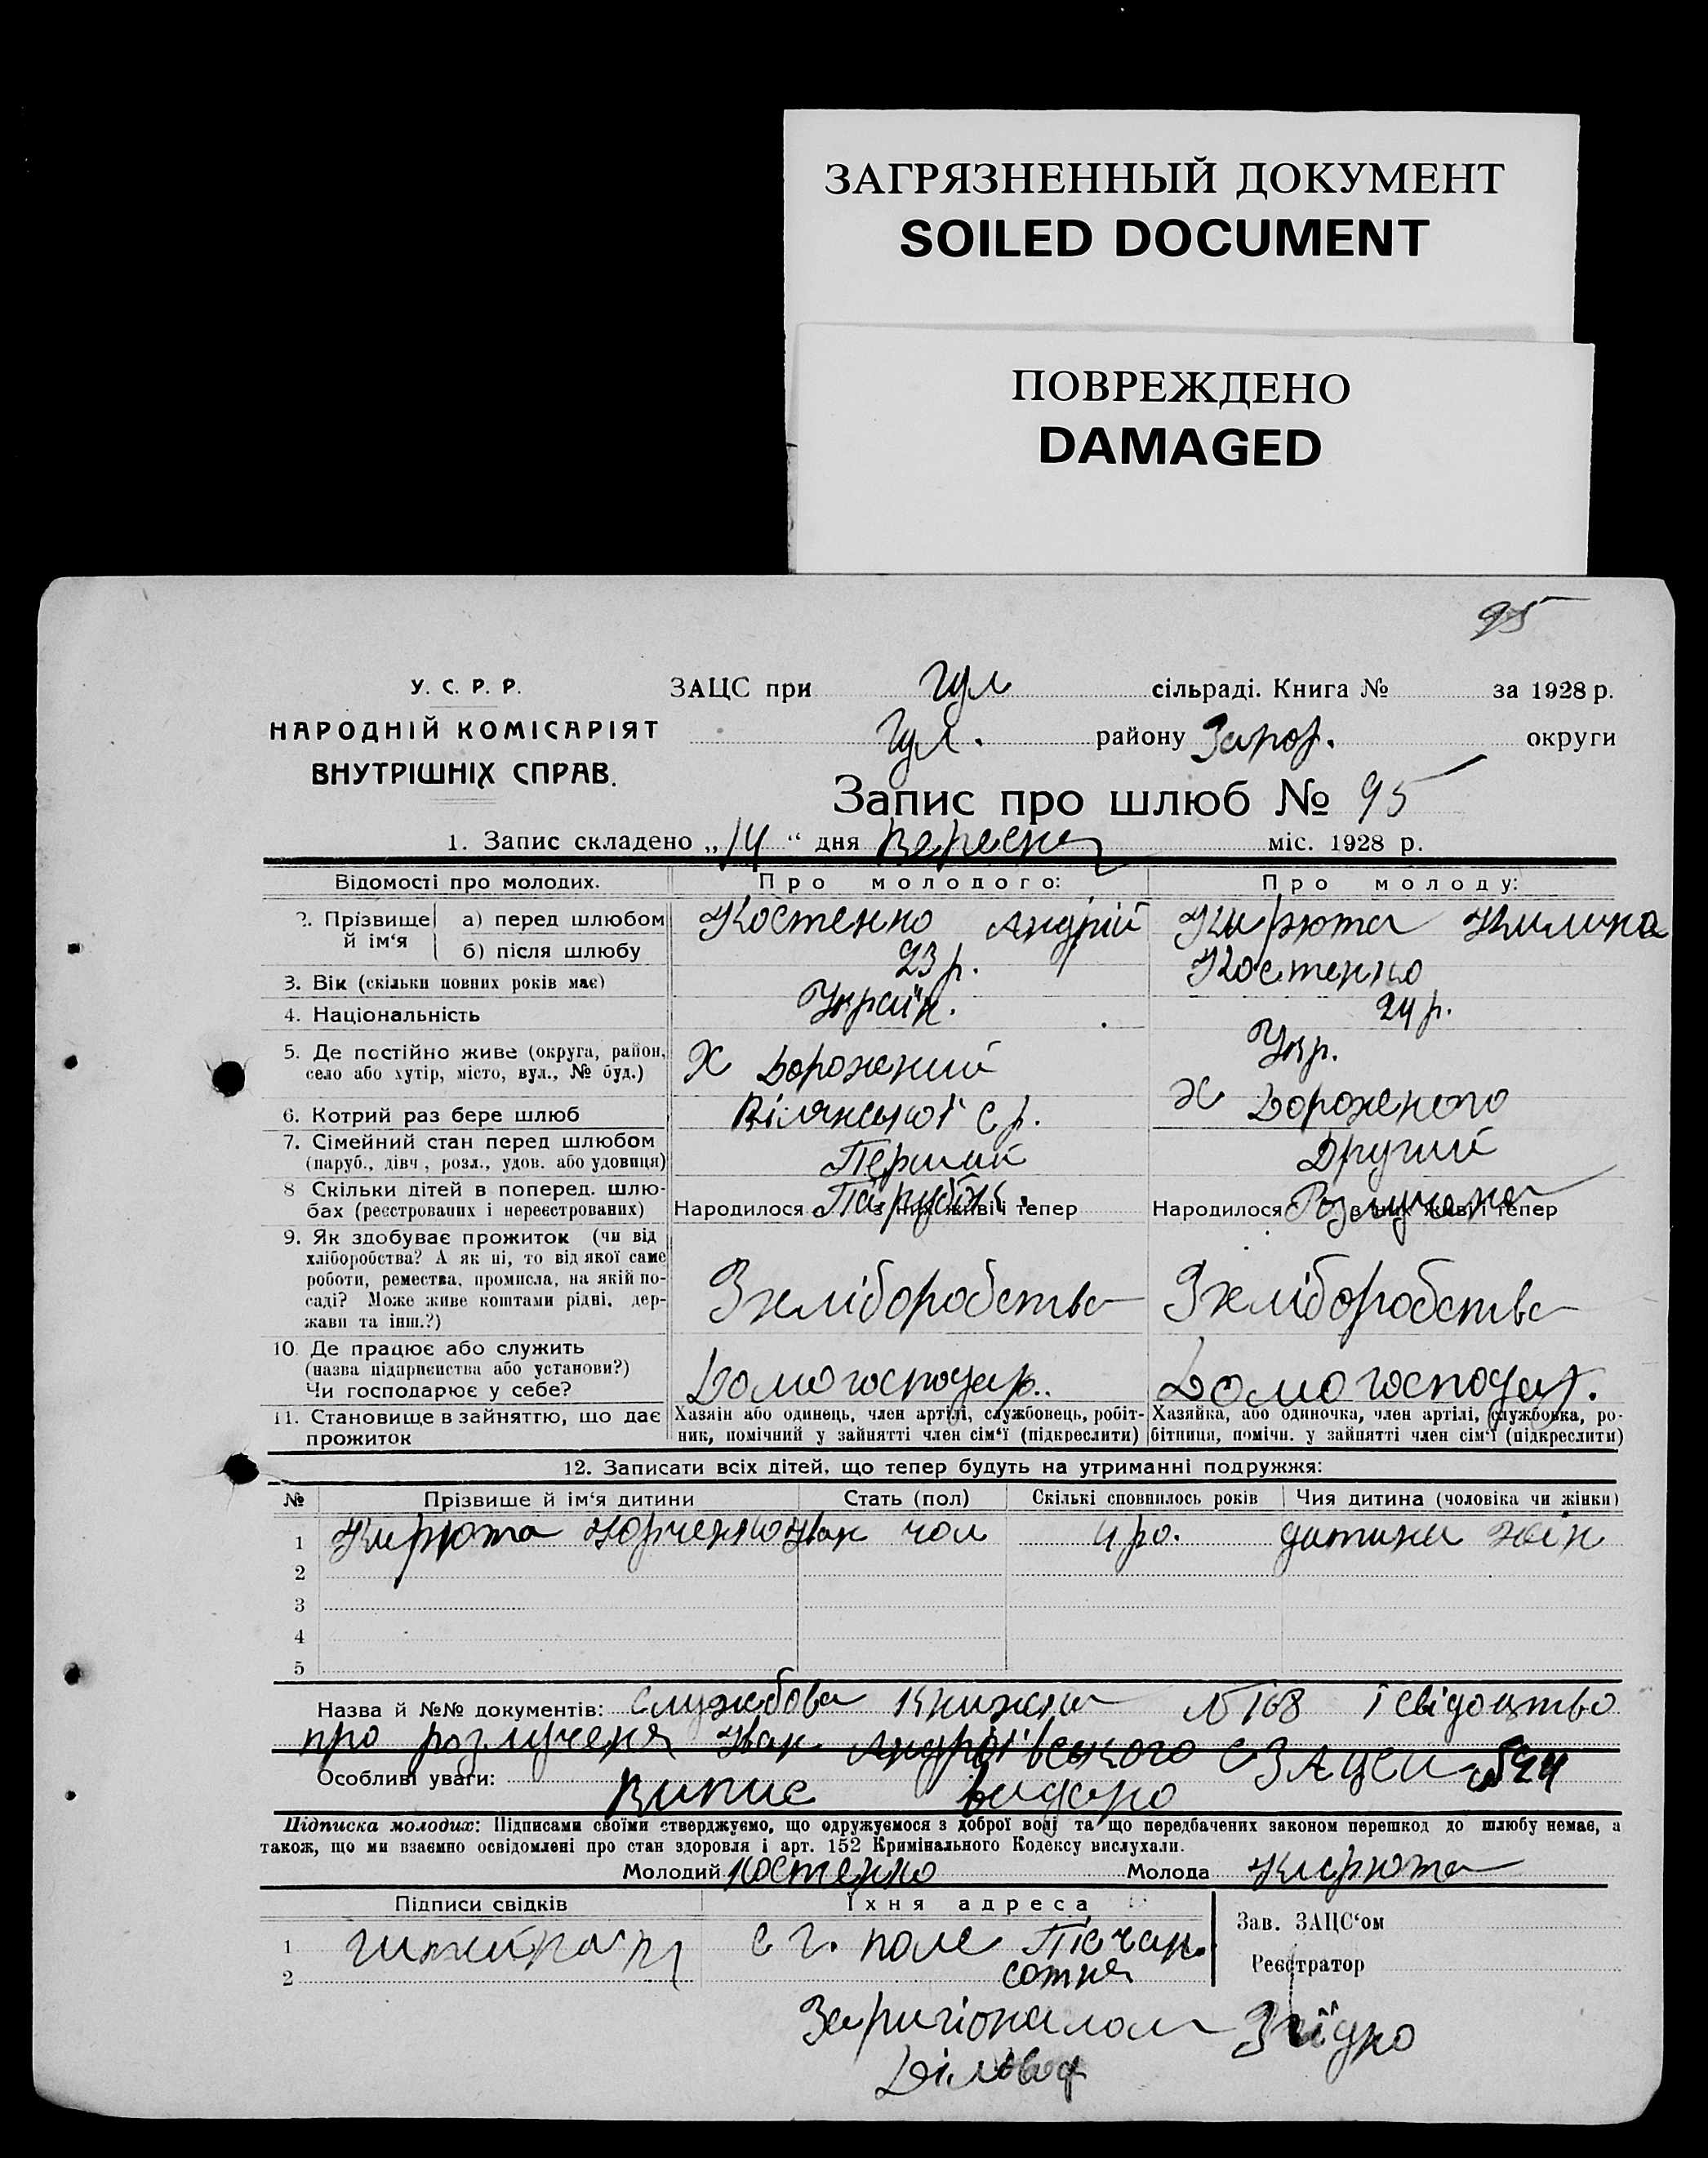 ЗАГРЯЗНЕННЫЙ ДОКУМЕНТ
SOILED DOCUMENT
ПОВРЕЖДЕНО
DAMAGED
95
У. С. Р. Р.
НАРОДНІЙ КОМІСАРІЯТ
ВНУТРІШНІХ СПРАВ.
ЗАЦС при Гул сільраді. Книга № за 1928 р.
Гул. району Запор. округи
Запис про шлюб № 95
1. Запис складено „14“ дня Вересня міс. 1928 р.
Відомості про молодих. Про молодого: Про молоду:
2. Прізвище й ім‘я а) перед шлюбом Костенко Андрій Кирюта Килина
б) після шлюбу Костенко
3. Вік (скільки повних років має) 23 р. 24 р.
4. Національність Україн. Укр.
5. Де постійно живе (округа, район, село або хутір, місто, вул., № буд.) Х Дорожний Х Дорожного
6. Котрий раз бере шлюб Вілянської с р. Другий
7. Сімейний стан перед шлюбом (паруб., дівч., розл., удов. або удовиця) Перший
8 Скільки дітей в поперед. шлюбах (реєстрованих і нереєстрованих) Народилося Парубок. з них живі і тепер Народилося Розлучена з них живі і тепер
9. Як здобуває прожиток (чи від хліборобства? А як ні, то від якої саме роботи, ремества, промисла, на якій посаді? Може живе коштами рідні, держави та інш.?) З хліборобства З хліборобства
10. Де працює або служить (назва підприєнства або установи?) Чи господарює у себе? Домогосподар. Домогосподар.
11. Становище в зайняттю, що дає прожиток Хазяїн або одинець, член артілі, службовець, робітник, помічний у зайнятті член сім‘ї (підкреслити) Хазяйка, або одиночка, член артілі, службовка, робітниця, помічн. у зайнятті член сім‘ї (підкреслити)
12. Записати всіх дітей, що тепер будуть на утриманні подружжя:
№ Прізвище й ім‘я дитини Стать (пол) Скількі сповнилось років Чия дитина (чоловіка чи жінки)
1 Кирюта Юрченко Іван чол 4 ро. дитина жін
2
3
4
5
Назва й №№ документів: Службова книжка № 168 і свідоцтво
про розлученя Іван Андріївського с ЗАЦСа № 24
Особливі уваги: Випис видано
Підписка молодих: Підписами своїми стверджуємо, що одружуємося з доброї волі та що передбачених законом перешкод до шлюбу немає, а
також, що ми взаємно освідомлені про стан здоровля і арт. 152 Кримінального Кодексу вислухали.
Молодий Костенко Молода Кирюта
Підписи свідків Їхня адреса Зав. ЗАЦС‘ом
1 с г. поле Песчан.
2 сотня Реєстратор
З оригіоналом Згідно
Діловод